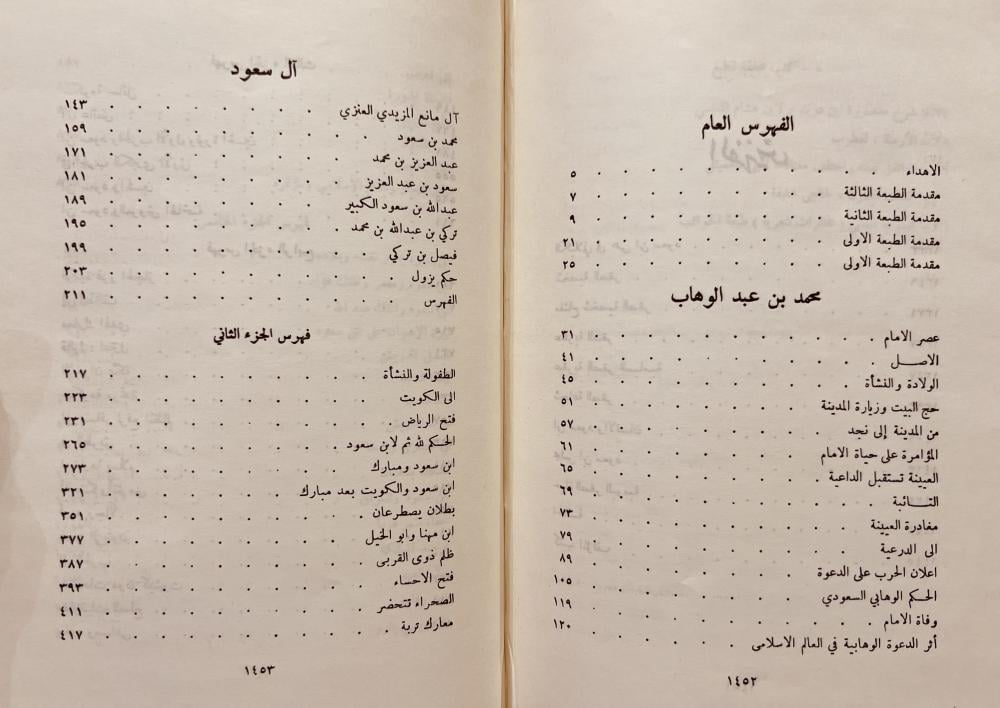 الفهرس العام
الاهداء . . . . . . . . . . ٥
مقدمة الطبعة الثالثة . . . . . . . . ٧
مقدمة الطبعة الثانية . . . . . . . . ٩
مقدمة الطبعة الاولى . . . . . . . . ٢١
مقدمة الطبعة الاولى . . . . . . . . ٢٥
محمد بن عبد الوهاب
عصر الامام . . . . . . . . . . ٣١
الاصل . . . . . . . . . . ٤١
الولادة والنشأة . . . . . . . . . ٤٥
حج البيت وزيارة المدينة . . . . . . . ٥١
من المدينة إلى نجد . . . . . . . . ٥٧
المؤامرة على حياة الامام . . . . . . . ٦١
العيينة تستقبل الداعية . . . . . . . ٦٥
التــائبة . . . . . . . . . . ٦٩
مغادرة العيينة . . . . . . . . . ٧٣
الى الدرعية . . . . . . . . . ٧٩
اعلان الحرب على الدعوة . . . . . . . ٨٩
الحكم الوهابي السعودي . . . . . . . ١٠٥
وفاة الامام . . . . . . . . . ١١٩
أثر الدعوة الوهابية في العالم الاسلامى . . . . . ١٢٠
١٤٥٢
آل سعود
آل مانع المزيدي العنزي . . . . . . . ١٤٣
محمد بن سعود . . . . . . . . . ١٥٩
عبد العزيز بن محمد . . . . . . . . ١٧١
سعود بن عبد العزيز . . . . . . . . ١٨١
عبدالله بن سعود الكبير . . . . . . . ١٨٩
تركي بن عبدالله بن محمد . . . . . . . ١٩٥
فيصل بن تركي . . . . . . . . . ١٩٩
حكم يزول . . . . . . . . . ٢٠٣
الفهرس . . . . . . . . . . ٢١١
فهرس الجزء الثاني
الطفولة والنشأة . . . . . . . . . ٢١٧
الى الكويت . . . . . . . . . ٢٢٣
فتح الرياض . . . . . . . . . ٢٣١
الحكم لله ثم لابن سعود . . . . . . . ٢٦٥
ابن سعود ومبارك . . . . . . . . ٢٧٣
ابن سعود والكويت بعد مبارك . . . . . . ٣٢١
بطلان يصطرعان . . . . . . . . ٣٥١
ابن مهنا وابو الخيل . . . . . . . . ٣٧٧
ظلم ذوى القربى . . . . . . . . ٣٨٧
فتح الاحساء . . . . . . . . . ٣٩٣
الصحراء تتحضر . . . . . . . . ٤١١
معارك تربة . . . . . . . . . ٤١٧
١٤٥٣